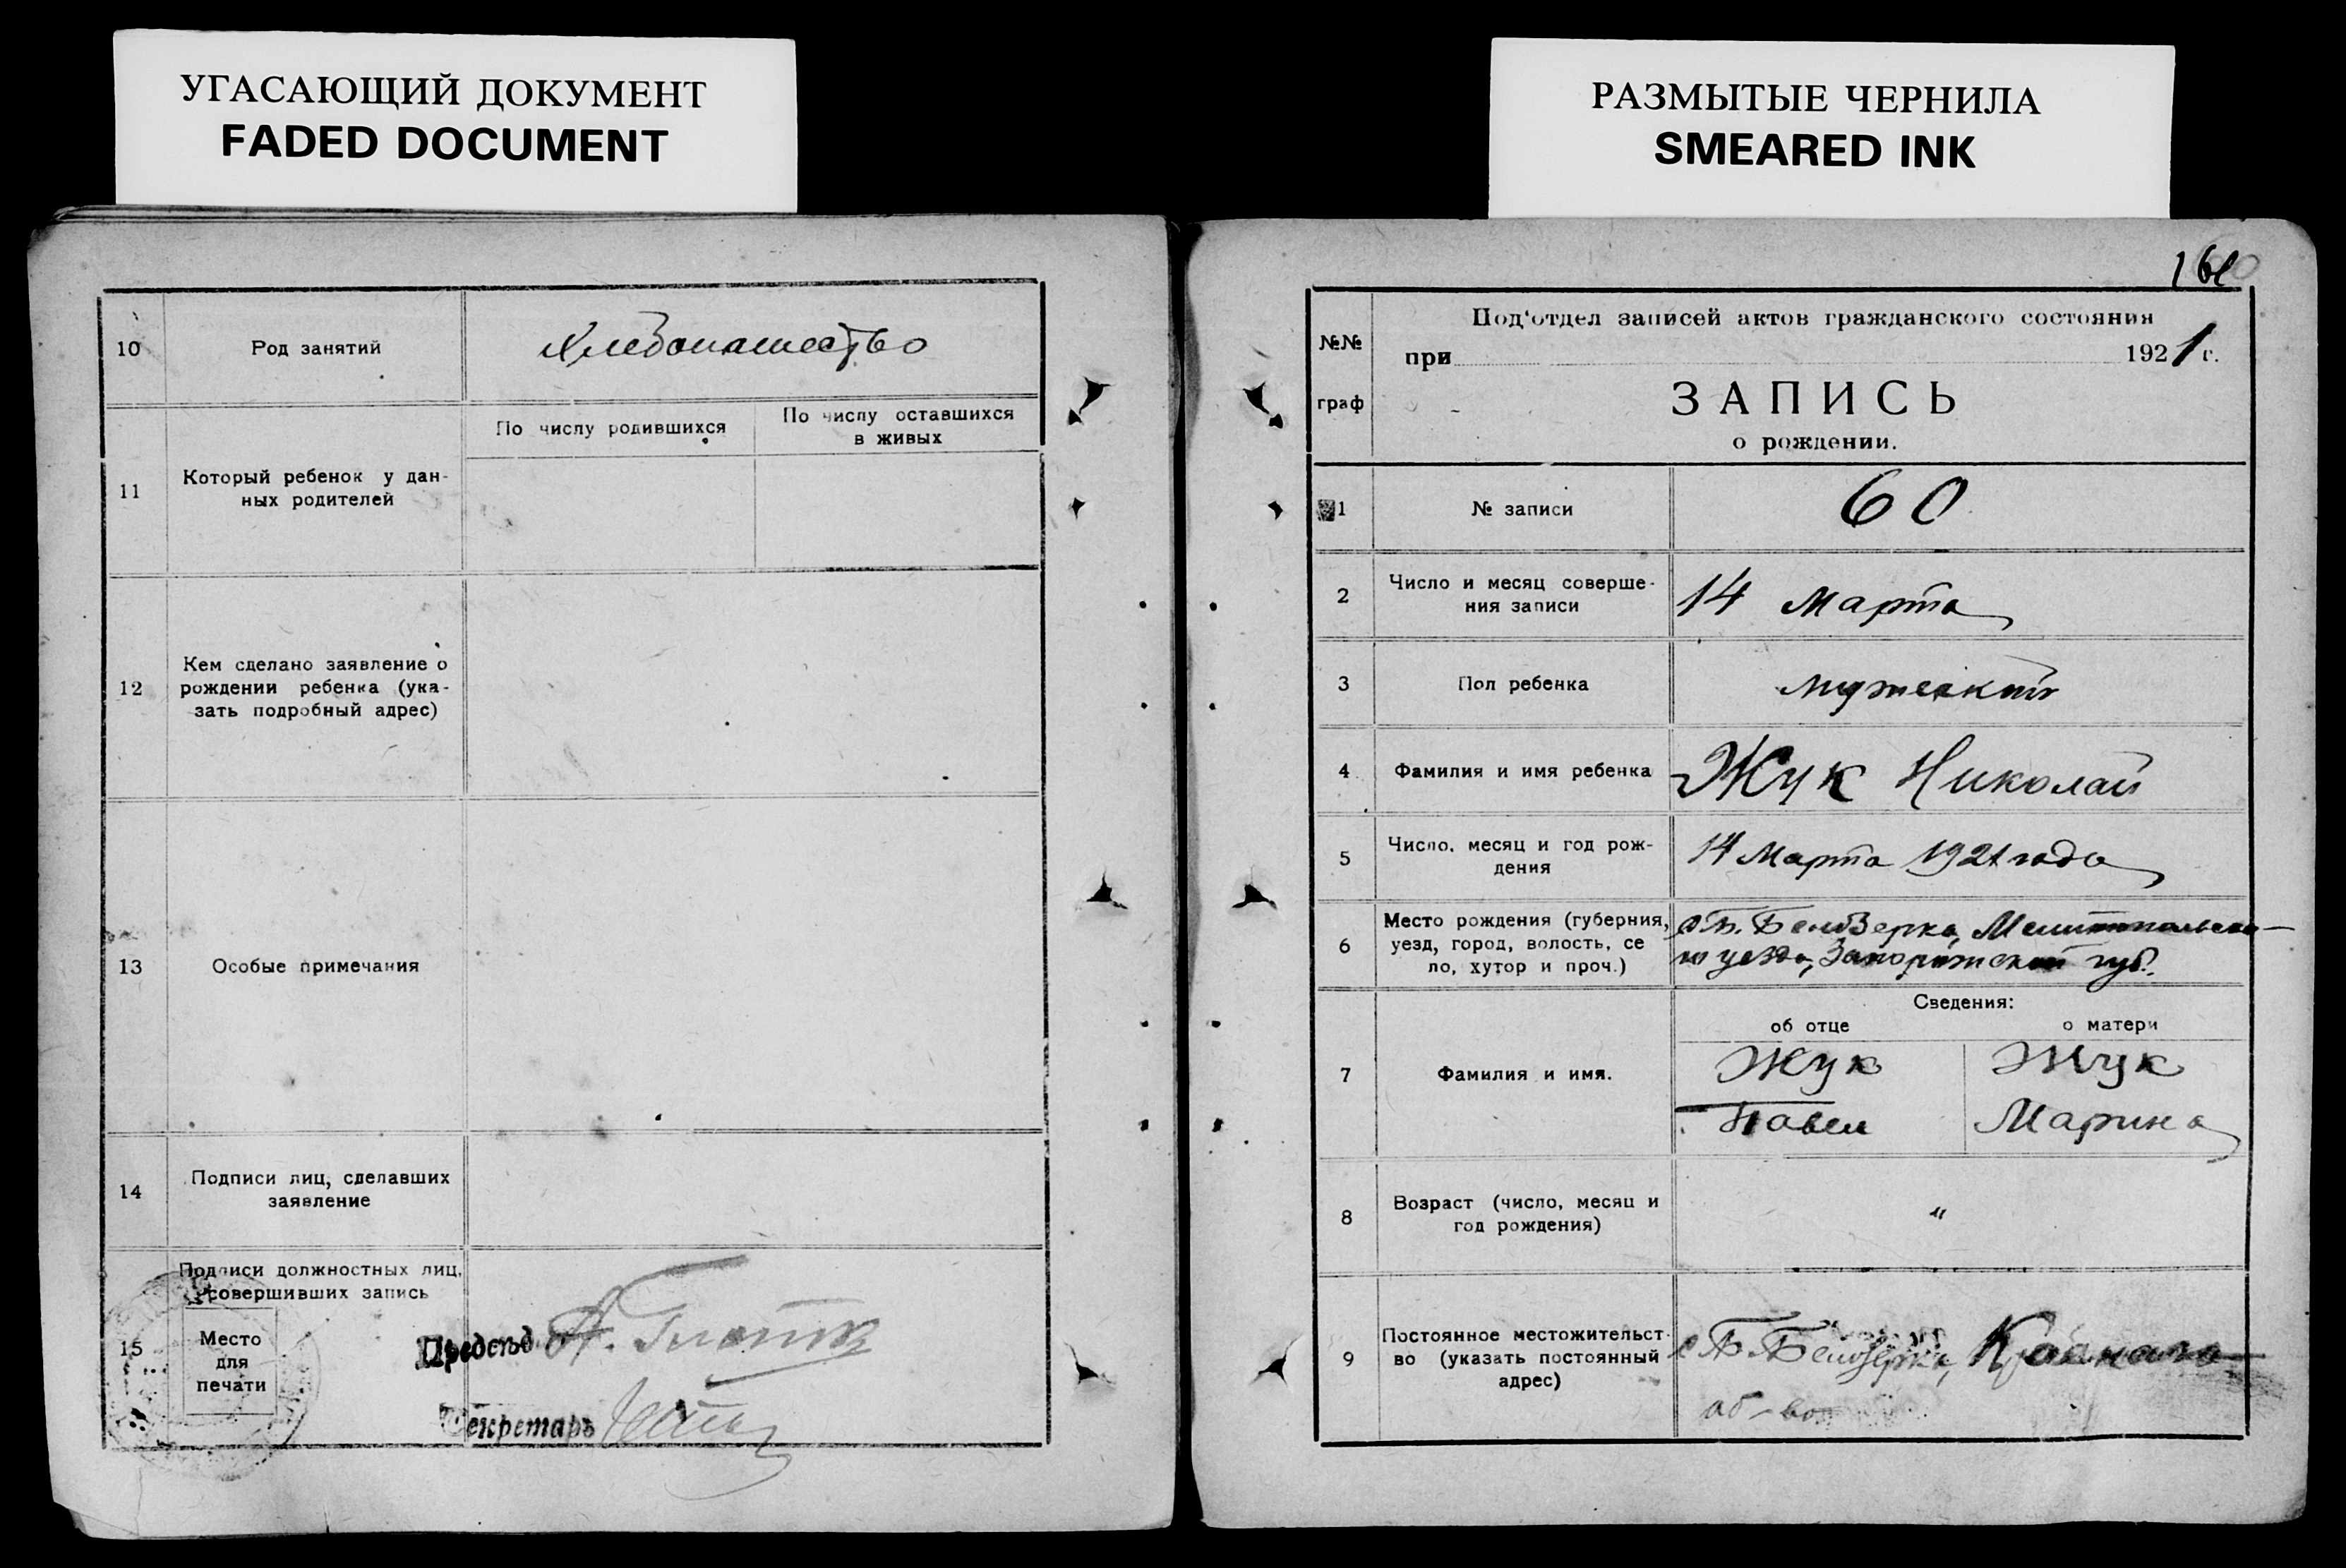 УГАСАЮЩИЙ ДОКУМЕНТ
FADED DOCUMENT
10
Род занятий
Хлебопашество
11
Который ребенок у дан-
ных родителей
По числу родившихся
По числу оставшихся
в живых
12
Кем сделано заявление о
рождении ребенка (ука-
зать подробный адрес)
13
Особые примечания
14
Подписи лиц, сделавших
заявление
15
Подписи должностных лиц,
совершивших запись
Место
для
печати
Предсѣд.
Секретарь
РАЗМЫТЫЕ ЧЕРНИЛА
SMEARED INK
№№
граф
Под'отдел записей актов гражданского состояния
при 1921 г.
ЗАПИСЬ
о рождении.
1
№ записи
60
2
Число и месяц соверше-
ния записи
14 Марта
3
Пол ребенка
мужеский
4
Фамилия и имя ребенка
Жук Николай
5
Число, месяц и год рож-
дения
14 Марта 1921 года
6
Место рождения (губерния,
уезд, город, волость, се
ло, хутор и проч.)
с Б. Белозерка, Мелитопольско-
го уезда, Запорожской губ.
Сведения:
об отце
о матери
7
Фамилия и имя.
Жук
Павел
Жук
Марина
8
Возраст (число, месяц и
год рождения)
"
9
Постоянное местожительст-
во (указать постоянный
адрес)
с Б. Белозерка,
об-во